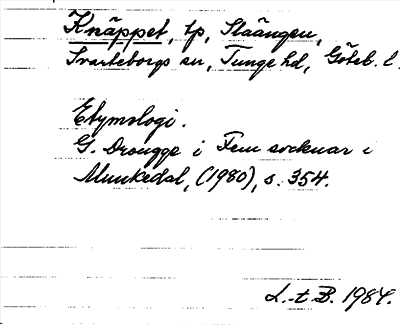 Knäppet, tp, Slaängen,
Svarteborgs sn, Tunge hd, Göteb. l.
Etymologi.
G. Drougge i Fem socknar i
Munkedal, (1980), s. 354.
L.-t B. 1984.